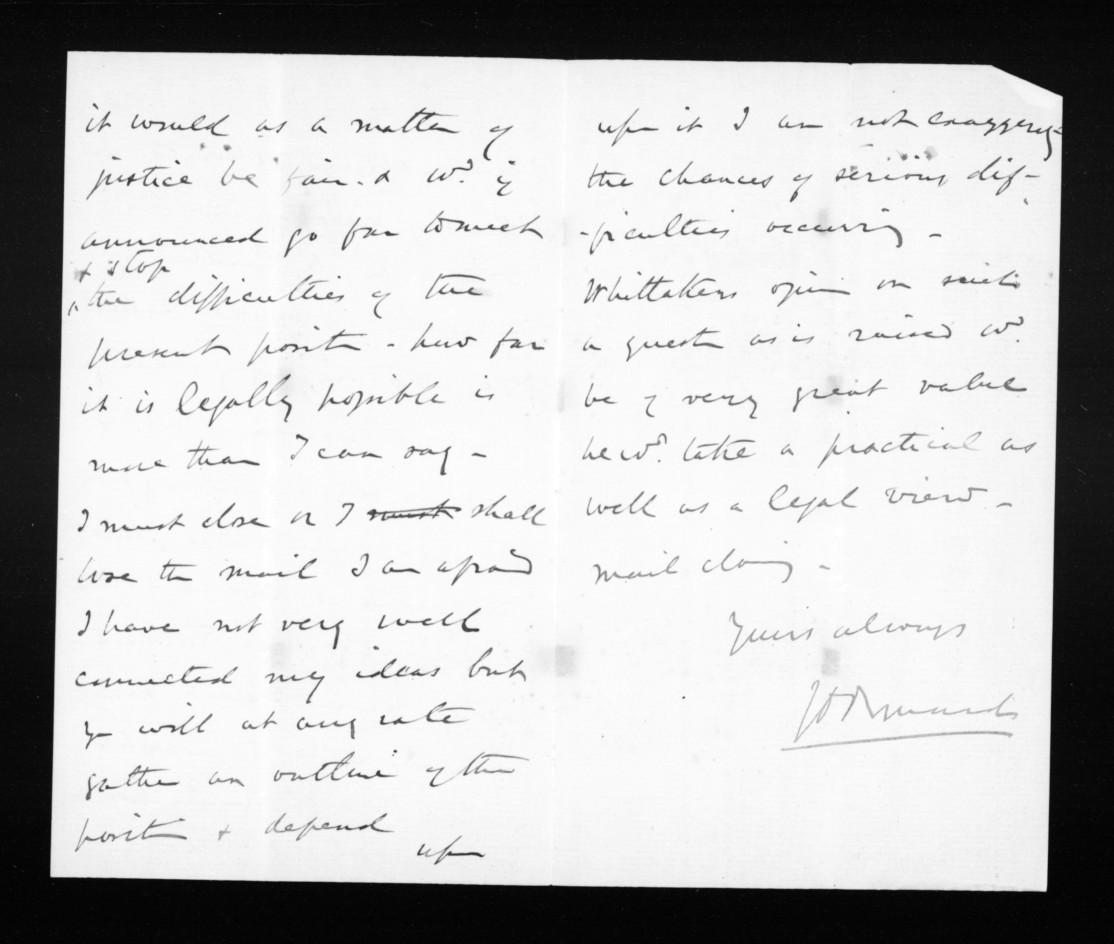 it would as a matter of
justice be fair. & wd. if
announced go far to meet
& stop
the difficulties of the
present positn - how far
it is legally possible is
more than I can say -
I must close or I must shall
lose the mail I am afraid
I have not very well
connected my ideas but
yr will at any rate
gather an outline of the
positn & depend
upon
upon it I am not exaggeratg
the chances of serious dif-
-ficulties occurring -
Whittakers opin on such
a questn as is raised wd.
be of very great value
he wd. take a practical as
well as a legal view -
mail closing -
Yours always